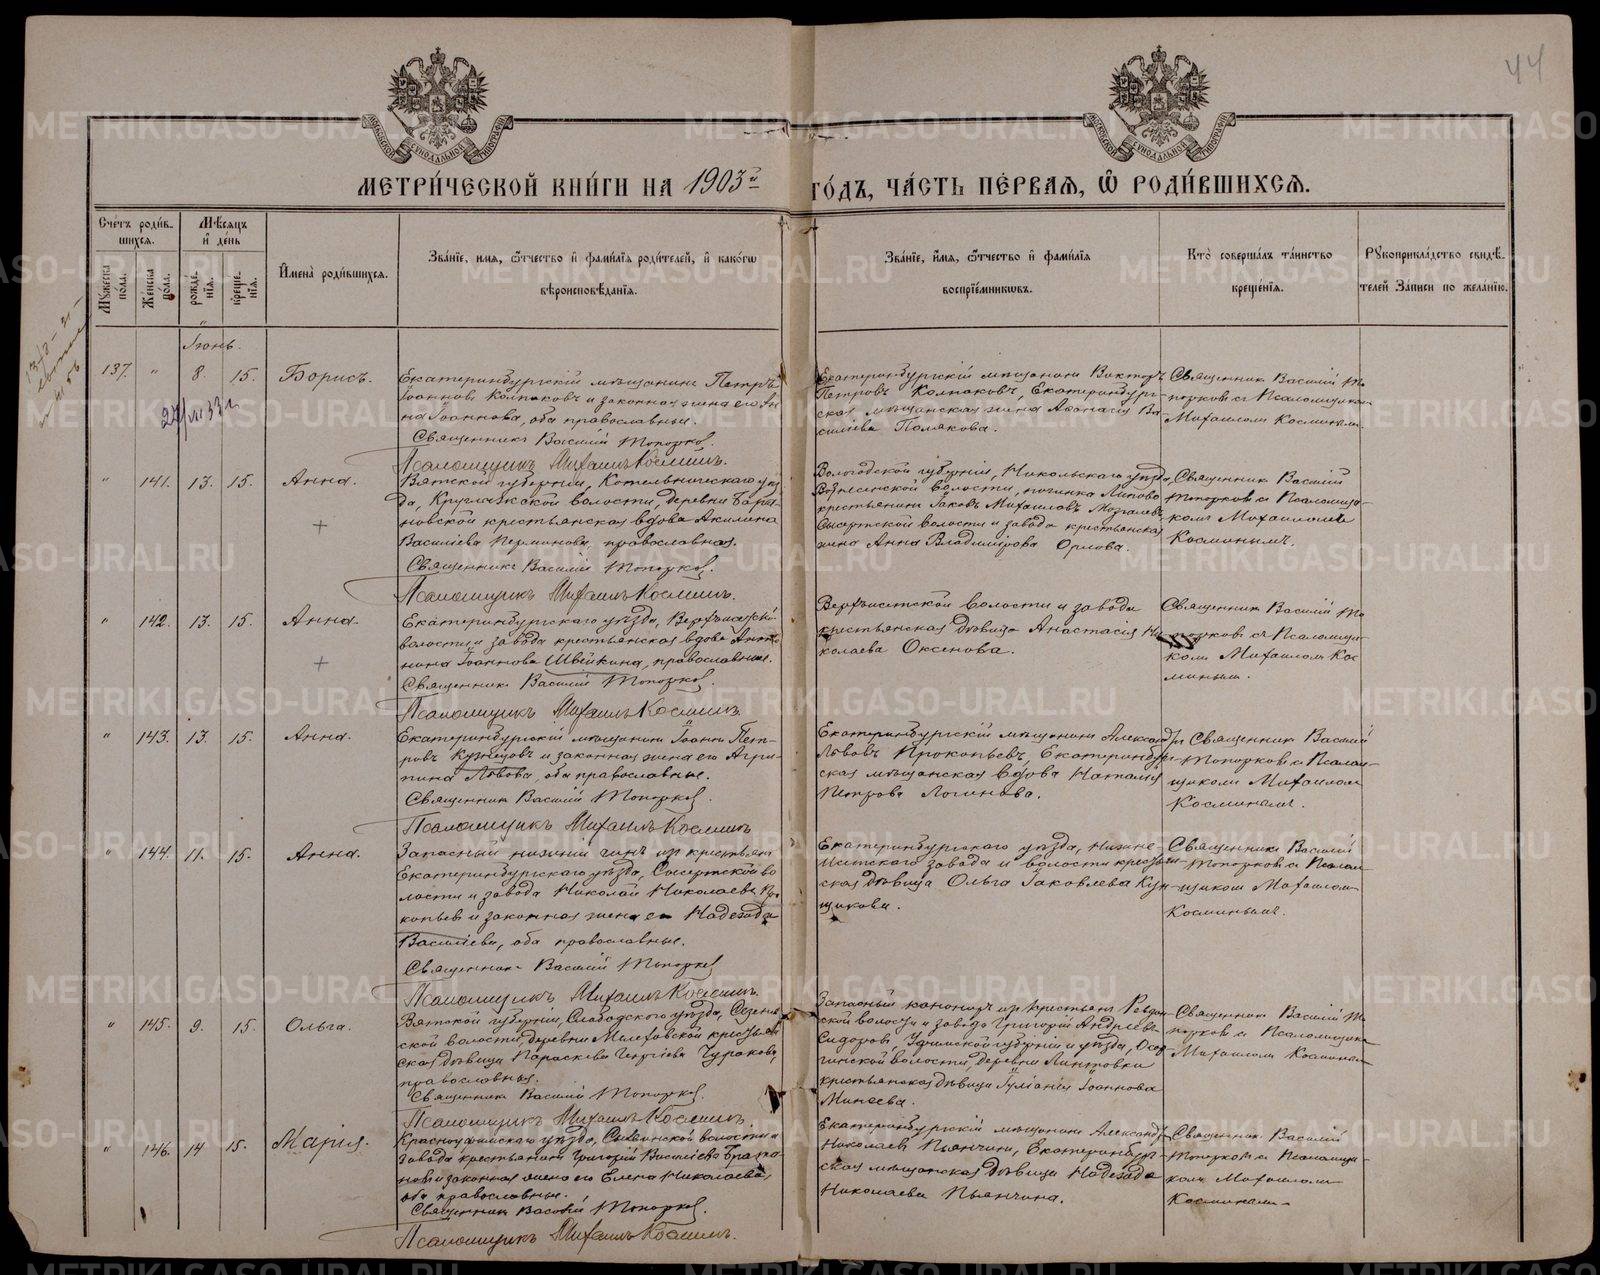 44
МЕТРИ́ЧЕСКОЙ КНИ́ГИ НА 1903й ГО́ДЪ, ЧА́СТЬ ПЕ́РВАЯ, Ѡ҆ РОДИ́ВШИХСЯ.
Сче́тъ роди́в-
шихся.
Мꙋ́жеска по́ла.
Же́нска по́ла.
Мѣ́сяцъ
и҆ де́нь
рожде́нїя.
креще́нїя.
И҆мена̀ роди́вшихся.
Зва́нїе, и҆мя, ѻ҆́тчество и҆ фами́лїя роди́телей, и҆ како́гѡ
вѣроисповѣ́данїя.
Зва́нїе, и҆́мя, ѻ҆́тчество и҆ фами́лїя
воспрїе́мникѡвъ.
Кто̀ соверша́лъ та́инство
креще́нїя.
Рꙋкоприкла́дство свидѣ́-
телей за́писи по жела́нїю.
Іюнь.
137. " 8. 15. Борисъ.
Екатеринбургскій мѣщанинъ Петръ
Іоанновъ Колпаковъ и законная жена его Ан
на Іоаннова, оба православные.
Священникъ Василій Топорков
Псаломщикъ Михаилъ Косминъ.
Екатеринбургскій мѣщанинъ Викторъ
Петровъ Колпаковъ, Екатеринбург-
ская мѣщанская жена Аѳанасія Ва-
сильева Полякова.
Священникъ Василій То-
порковъ съ Псаломщико
Михаиломъ Косминым.
" 141. 13. 15. Анна.
Вятской губерніи, Котельническаго уѣз
да, Кругл волости, деревни Бара-
новской крестьянская вдова Акилина
Василіева Перминова, православная.
Священникъ Василій Топорков
Псаломщикъ Михаилъ Косминъ.
Вологодской губерніи, Никольскаго уѣзда,
Вознесенской волости, починка Липово
крестьянинъ Іаковъ Михаиловъ
Сысертской волости и завода крестьянская
жена Анна Владимірова Орлова.
Священникъ Василій
Топорковъ съ Псаломщи-
комъ Михаиломъ
Косминымъ.
" 142. 13. 15. Анна.
Екатеринбургскаго уѣзда, Верхъисетской
волости и завода крестьянская вдова Анто
нина Іоаннова Швейкина, православные.
Священникъ Василій Топорков
Псаломщикъ Михаилъ Косминъ.
Верхъисетской волости и завода
крестьянская дѣвица Анастасія Ни
колаева Оксенова.
Священникъ Василій То
порковъ съ Псаломщи-
комъ Михаиломъ Кос
минымъ.
" 143. 13. 15. Анна.
Екатеринбургскій мѣщанинъ Іоаннъ Пет-
ровъ Кузнецовъ и законная жена его Агри-
пина Львова, оба православные.
Священникъ Василій Топорков
Псаломщикъ Михаилъ Косминъ
Екатеринбургскій мѣщанинъ Александръ
Львовъ Прокопьевъ, Екатеринбург-
ская мѣщанская вдова Наталія
Петрова Логинова.
Священникъ Василій
Топорковъ съ Псалом-
щикомъ Михаиломъ
Косминымъ.
" 144. 11. 15. Анна.
Запасный нижній чинъ изъ крестьянъ
Екатеринбургскаго уѣзда, Сысертской во
лости и завода Николай Николаевъ Про
копьев и законная жена его Надежда
Василіева, оба православные.
Священникъ Василій Топорков
Псаломщикъ Михаилъ Косминъ.
Екатеринбургскаго уѣзда, Нижне-
Исетскаго завода и волости крестьян-
ская дѣвица Ольга Іаковлева Кун-
щикова.
Священникъ Василій
Топорковъ съ Псалом-
щикомъ Михаиломъ
Косминымъ.
" 145. 9. 15. Ольга.
Вятской губерніи, Слабодского уѣзда, Сезенев
ской волости, деревни крестьян
ская дѣвица Параскева Георгіева Чуракова,
православная.
Священникъ Василій Топорков
Псаломщикъ Михаилъ Косминъ.
Запасный канониръ изъ крестьянъ Ревдин-
ской волости и завода Григорій Андреевъ
Сидоровъ, Уфимской губерніи и уѣзда,
волости, деревни
крестьянская дѣвица Іуліанія Іоаннова
Минеева.
Священникъ Василій То
порковъ съ Псаломщикомъ
Михаиломъ Косминым
" 146. 14 15. Марія.
Красноуфимскаго уѣзда, Сылвинской волости и
завода крестьянинъ Григорій Василіевъ
и законная жена его Елена Николаева,
оба православные.
Священникъ Василій Топорков
Псаломщикъ Михаилъ Косминъ.
Екатеринбургскій мѣщанинъ Александръ
Николаевъ Пьянчинъ, Екатеринбург-
ская мѣщанская дѣвица Надежда
Николаева Пьянчина.
Священникъ Василій
Топорковъ съ Псаломщи-
комъ Михаиломъ
Косминымъ
METRIKI.GASO-URAL.RU